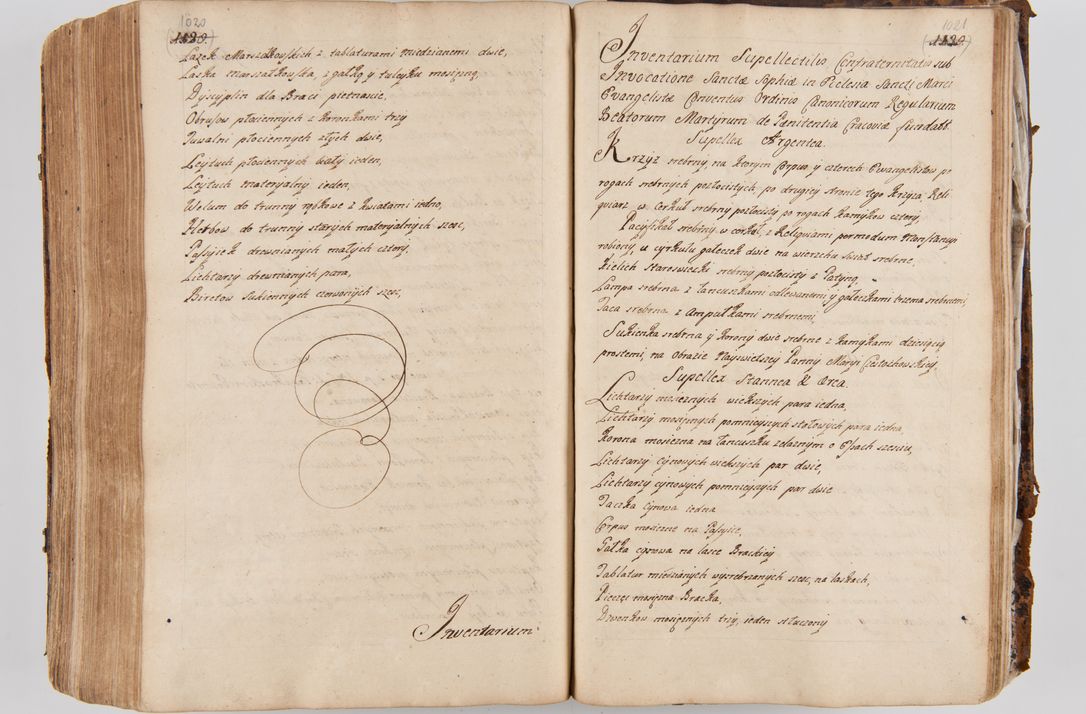 1020
Lasek Marszałkowskich z tablaturami miedzianemi dwie,
Laska marszałkowska, z gałką y tuleyką mosiężną,
Dyscyplin dla Braci pietnaście,
Obrusow płociennych z koronkami trzy
Tuwalni płociennych złych dwie,
Leytuch płociennych biały ieden,
Leytuch materyalny ieden,
Welum do trunny rąbkowe z kwiatami iedno,
Herbow do trunny starych materyalnych szesc,
Passyiek drewnianych małych cztery,
Lichtarzy drewnianych para,
Biretow Sukiennych czerwonych szesc,
Inventarium
1021
Inventarium Supellectilis Confraternitatis sub
Invocatione Sanctæ Sophiæ in Ecclesia Sancti Marci
Evangelistæ Conventus Ordinis Canonicorum Regularium
Beatorum Martyrum de Pænitentia Cracoviæ fundatæ.
Supellex Argentea.
Krzyż srebrny, na ktorym Corpus y czterech Ewangelistow po
rogach srebrnych pozłocistych po drugiey stronie tego krzyża, Reli
quiarz w Cyrkuł srebrny pozłocisty po rogach kamykow cztery,
Pacyfikał srebrny, w cyrkuł, z Reliquiami per modum Monstrancyi
robiony, w cyrkułu gałeczek dwie na wierzchu Swiat srebrne,
Kielich staroswiecki srebrny pozłocisty z Patyną,
Lampa srebrna z łancuszkami odlewanemi y gałeczkami trzema srebrnemi,
Taca srebrna z ampułkami srebrnemi,
Sukienka srebrna y korony dwie srebrne z kamykami dziesięcią
prostemi, na Obrazie Nayswiętszey Panny Maryi Częstochowskiey,
Supellex Stannea & Ærea.
Lichtarzy mosiężnych większych para iedna,
Lichtarzy mosiężnych pomnieyszych stołowych para iedna
Korona mosiężna na łancuszku żelaznym o Essach szesciu,
Lichtarzy cynowych większych par dwie,
Lichtarzy cynowych pomnieyszych par dwie
Taczka cynowa iedna
Corpus mosiężne na Passyice,
Gałka cynowa na lasce Brackiey
Tablatur miedzianych wysrebrzanych szesc, na laskach,
Pieczęc mosiężna Bracka,
Dzwonkow mosiężnych trzy, ieden stłuczony